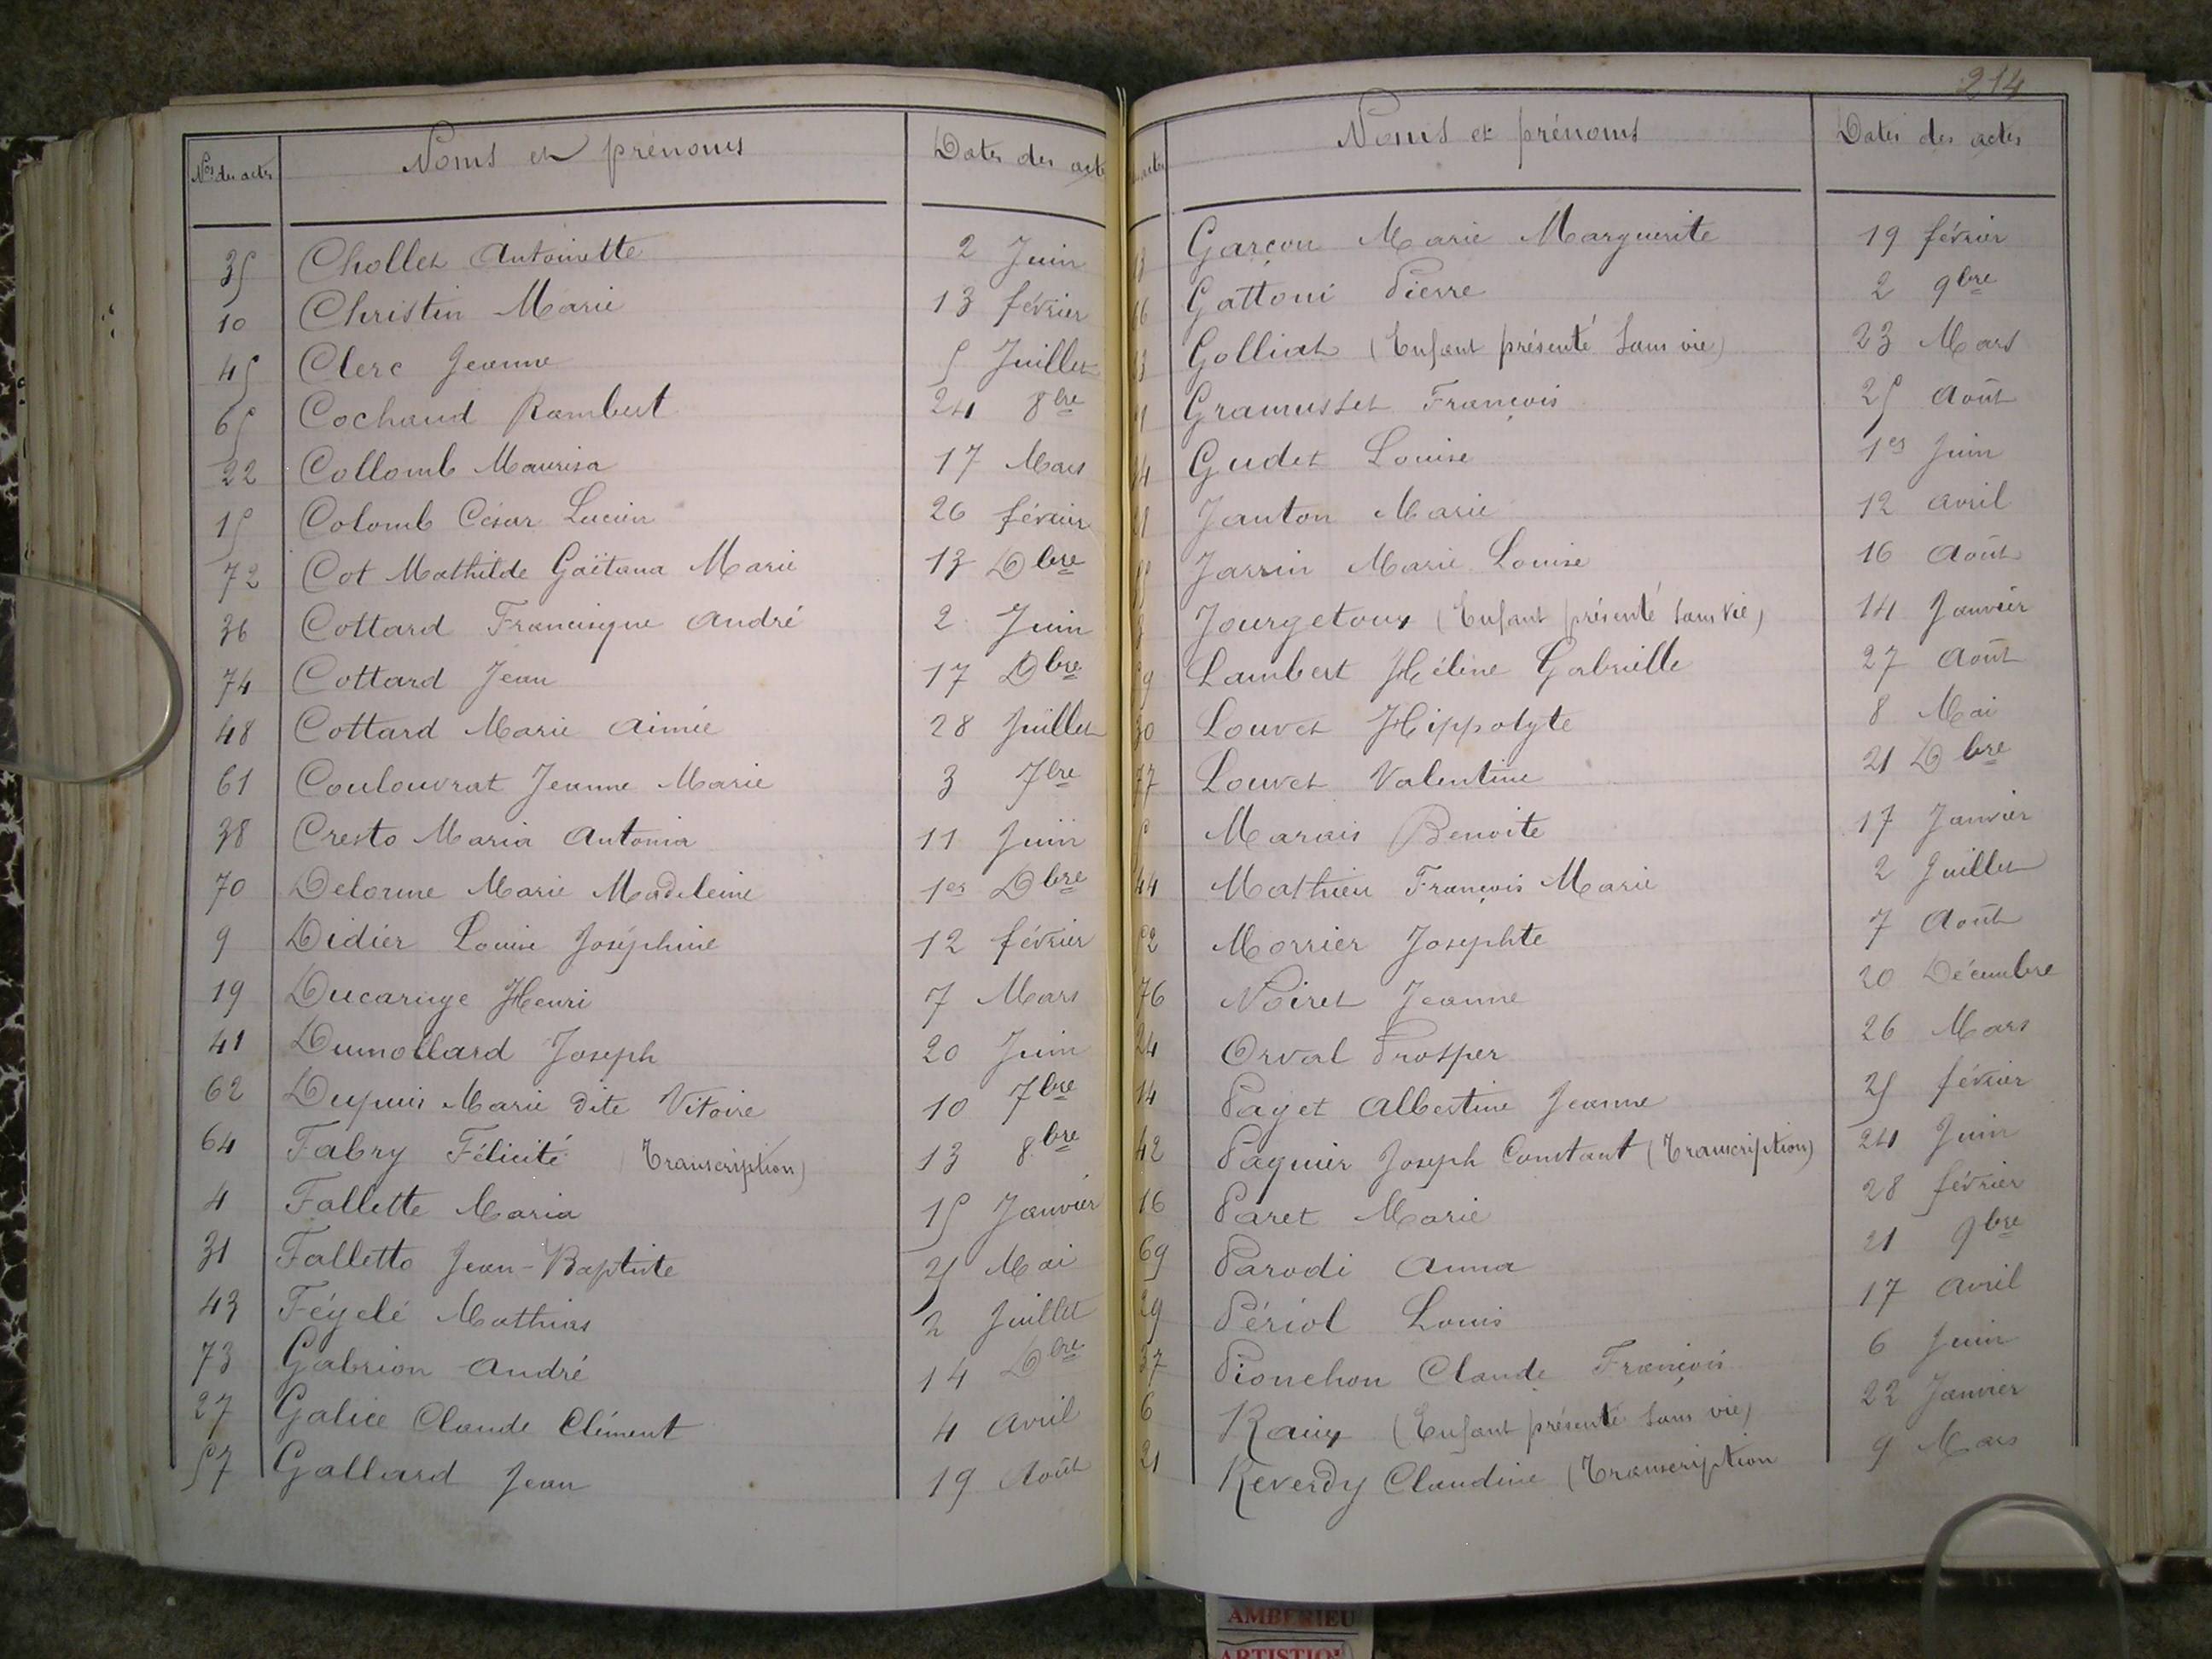 Nos des actes Noms et prénoms Dates des acte
35 Chollet Antoinette 2 Juin
10 Christin Marie 13 février
45 Clerc Jeanne 5 Juillet
65 Cochaud Rambert 24 8bre
22 Collomb Maurisa 17 Mars
15 Colomb César Lucien 26 février
72 Cot Mathilde Gaëtana Marie 13 Dbre
36 Cottard Francisque André 2 Juin
74 Cottard Jean 17 Dbre
48 Cottard Marie Aimée 28 Juillet
61 Coulouvrat Jeanne Marie 3 7bre
38 Cresto Maria Antonia 11 Juin
70 Delorme Marie Madeleine 1er Dbre
9 Didier Louise Joséphine 12 février
19 Ducaruge Henri 7 Mars
41 Dumollard Joseph 20 Juin
62 Dupuis Marie dite Vitoire 10 7bre
64 Fabry Félicité (Transcription) 13 8bre
4 Fallette Maria 15 Janvier
31 Falletto Jean-Baptiste 25 Mai
43 Fégelé Mathias 2 Juillet
73 Gabrion André 14 Dbre
27 Galice Claude Clément 4 Avril
57 Galland Jean 19 Août
214
actes Noms et prénoms Dates des actes
Garçon Marie Marguerite 19 février
66 Gattoni Pierre 2 9bre
Golliat (Enfant présenté sans vie) 23 Mars
Gramusset François 25 Août
34 Gudet Louise 1er Juin
Janton Marie 12 avril
Jarrin Marie Louise 16 Août
Jourgetoux (Enfant présenté sans vie) 14 Janvier
Lambert Hélène Gabrielle 27 Août
30 Louvet Hippolyte 8 Mai
77 Louvet Valentine 21 Dbre
Marais Benoite 17 Janvier
44 Mathieu François Marie 2 Juillet
52 Morrier Josephte 7 Août
76 Noiret Jeanne 20 Décembre
24 Orval Prosper 26 Mars
14 Paget Albertine Jeanne 25 février
42 Paquier Joseph Constant (Transcription) 24 Juin
16 Paret Marie 28 février
69 Parodi Anna 21 9bre
29 Périol Louis 17 Avril
37 Pionchon Claude François 6 Juin
6 Raux (Enfant présenté sans vie) 22 Janvier
21 Reverdy Claudine (Transcription 9 Mars
AMBERIEU